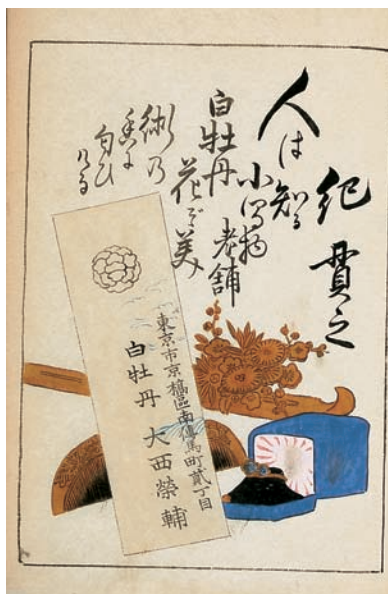 紀貫之
人は知る
小間物老舗
白牡丹
花ぞ美
術乃
香に
匂ひ
ける
東京市京橋區南傳馬町貳丁目
白牡丹 大西榮輔